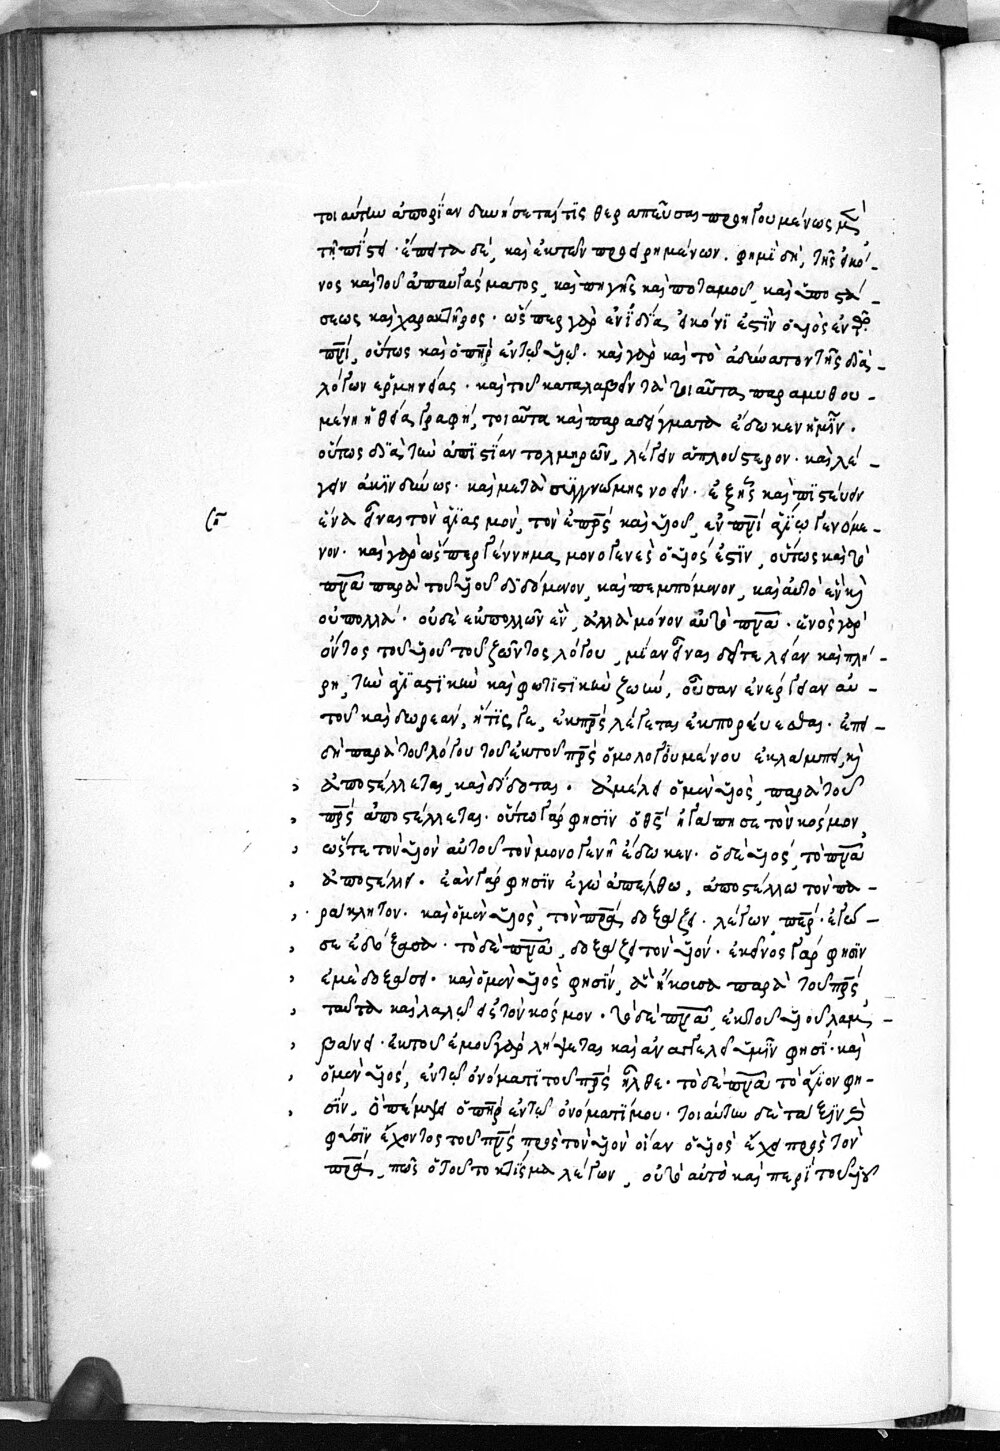 τοιαύτην ἀπορίαν δυνήσεται τὶς θεραπεῦσαι προηγουμένως μὲν
τῇ πίστει· ἔπειτα δὲ, καὶ ἐκ τῶν προειρημένων. φημὶ δὴ, τῆς εἰκό-
νος καὶ τοῦ ἀπαυγάσματος, καὶ πηγῆς καὶ ποταμοῦ, καὶ ὑποστά-
σεως καὶ χαρακτῆρος· ὥσπερ γὰρ ἐν ἰδίᾳ εἰκόνι ἐστὶν ὁ υἱὸς ἐν τῷ
πρὶ, οὕτως καὶ ὁ πὴρ ἐν τῷ υἱῷ· καὶ γὰρ καὶ τὸ ἀδύνατον τῆς διὰ
λόγων ἑρμηνείας· καὶ τοῦ καταλαβεῖν τὰ τοιαῦτα παραμυθου-
μένη ἡ θεία γραφὴ, τοιαῦτα καὶ παραδείγματα ἔδωκεν ἡμῖν.
οὕτως διὰ τὴν ἀπιστίαν τολμηρῶν, λέγειν ἁπλούστερον· καὶ λέ-
γειν ἀκινδύνως· καὶ μετὰ συγγνώμης νοεῖν· ἑξῆς καὶ πιστεύειν
ἕνα εἶναι τὸν ἁγιασμὸν, τὸν ἐκ πρὸς καὶ υἱοῦ, ἐν πνὶ ἁγίῳ γενόμε-
νον· καὶ γὰρ ὥσπερ γέννημα μονογενὲς ὁ υἱός ἐστιν, οὕτως καὶ τὸ
πνα παρὰ τοῦ υἱοῦ διδόμενον, καὶ πεμπόμενον, καὶ αὐτὸ ἕν καὶ
οὐ πολλὰ· οὐδὲ ἐκ πολλῶν ἓν, ἀλλὰ μόνον αὐτὸ πνα· ἑνὸς γὰρ
ὄντος τοῦ υἱοῦ τοῦ ζῶντος λόγου, μίαν εἶναι δεῖ τελείαν καὶ πλή-
ρη, τὴν ἁγιαστικὴν καὶ φωτιστικὴν ζωὴν, οὖσαν ἐνέργειαν αὐ-
τοῦ καὶ δωρεὰν, ἥτίς γε, ἐκ πρὸς λέγεται ἐκπορεύεσθαι· ἐπει-
δὴ παρὰ τοῦ λόγου τοῦ ἐκ τοῦ πρὸς ὁμολογουμένου ἐκλάμπει, καὶ
ἀποστέλλεται, καὶ δίδοται. ἀμέλει ὁ μὲν υἱὸς, παρὰ τοῦ
πρὸς ἀποστέλλεται· οὕτω γάρ φησιν ὁ θς ἠγάπησε τὸν κόσμον
ὥστε τὸν υἱὸν αὐτοῦ τὸν μονογενῆ ἔδωκεν. ὁ δὲ υἱὸς, τὸ πνα
ἀποστέλλει. ἐὰν γάρ φησιν ἐγὼ ἀπέλθω, ἀποστέλλω τὸν πα-
ράκλητον. καὶ ὁ μὲν υἱὸς, τὸν πρα δοξάζει. λέγων, περ· ἐγώ
σε ἐδόξασα· τὸ δὲ πνα, δοξάζει τὸν υἱόν· ἐκεῖνος γάρ φησιν
ἐμὲ δοξάσει· καὶ ὁ μὲν υἱὸς φησίν, ἃ ἤκουσα παρὰ τοῦ πρὸς,
ταῦτα καὶ λαλῶ εἰς τὸν κόσμον. τὸ δὲ πνα, ἐκ τοῦ υἱοῦ λαμ-
βάνει· ἐκ τοῦ ἐμοῦ γὰρ λήψεται καὶ ἀναγγελεῖ ὑμῖν φησί· καὶ
ὁ μὲν υἱὸς, ἐν τῷ ὀνόματι τοῦ πρὸς ἦλθε· τὸ δὲ πνα τὸ ἅγιον φη-
σὶν, ὃ πέμψει ὁ πὴρ ἐν τῷ ὀνόματί μου. τοιαύτην δὲ τάξιν καὶ
φύσιν ἔχοντος τοῦ πνς πρὸς τὸν υἱὸν οἵαν ὁ υἱὸς ἔχει πρὸς τὸν
πρα, πῶς ὁ τοῦτο κτίσμα λέγων, οὐ τὸ αὐτὸ καὶ περὶ τοῦ υἱοῦ